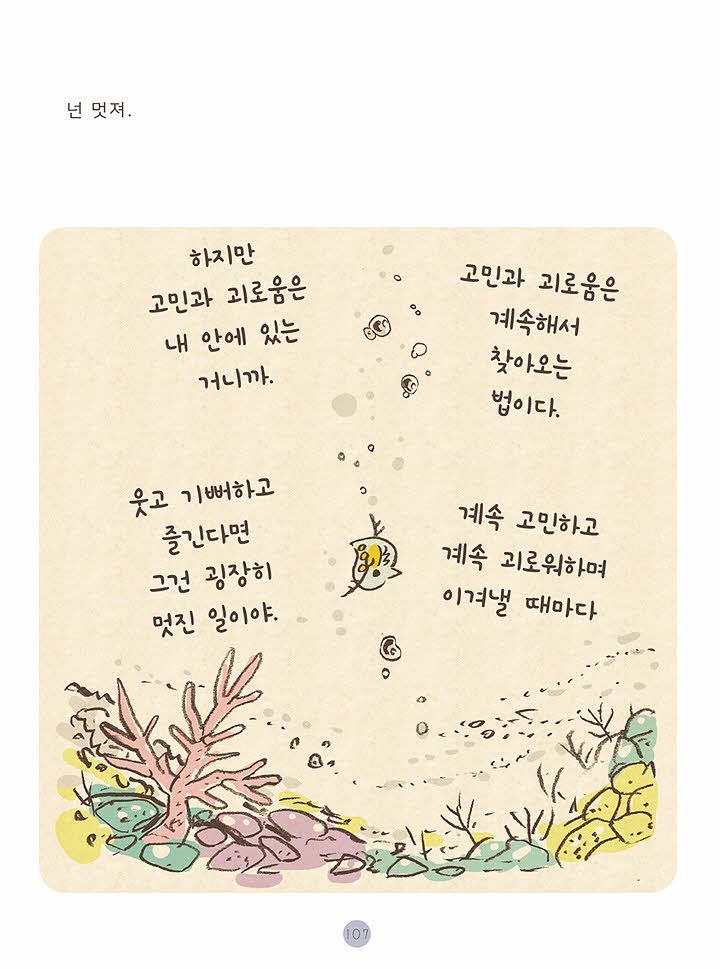 넌 멋져.
하지만
고민과 괴로움은
내 안에 있는
거니까.
고민과 괴로움은
계속해서
찾아오는
법이다.
웃고 기뻐하고
즐긴다면
그건 굉장히
멋진 일이야.
계속 고민하고
계속 괴로워하며
이겨낼 때마다
107